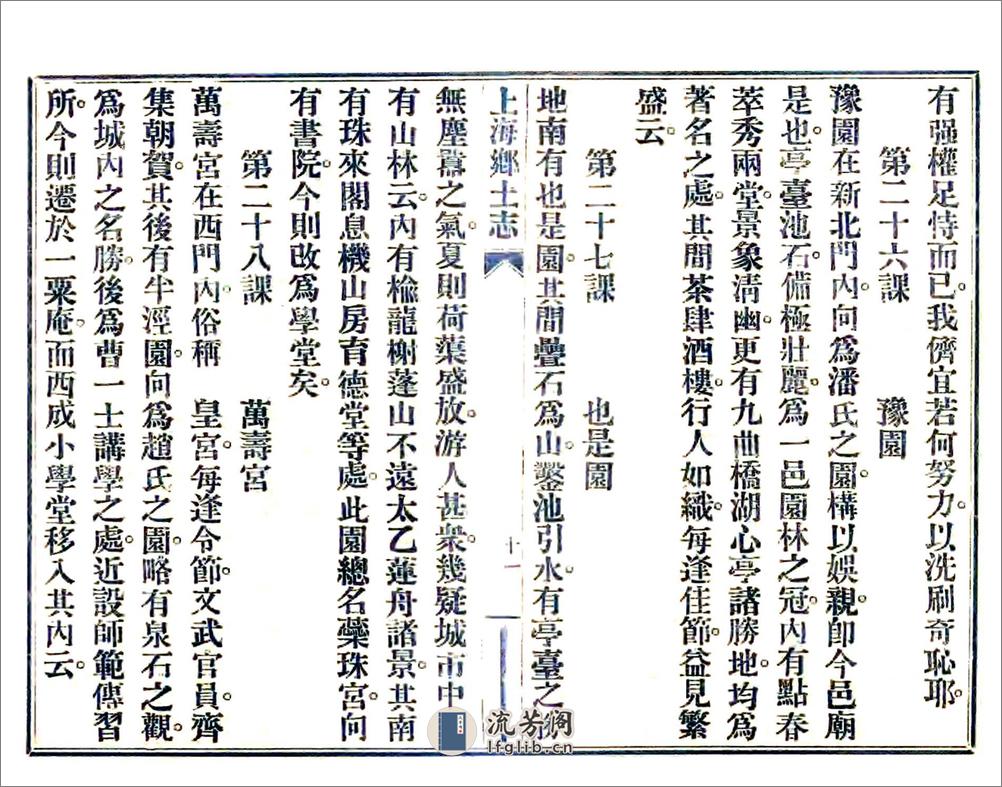 有强權足恃而已。我儕宜若何努力。以洗刷奇恥耶。
第二十六課　豫園
豫園在新北門內。向爲潘氏之園。構以娛親。卽今邑廟
是也。亭臺池石。備極壯麗。爲一邑園林之冠。內有點春
萃秀兩堂。景象淸幽。更有九曲橋湖心亭諸勝地。均爲
著名之處。其間茶肆酒樓。行人如織。每逢佳節。益見繁
盛云。
第二十七課　也是園
地南有也是園。其間疊石爲山。鑿池引水。有亭臺之
上海鄉土志
十一
無塵囂之氣。夏則荷蕖盛放。游人甚衆。幾疑城市中
有山林云。內有榆龍榭蓬山不遠太乙蓮舟諸景。其南
有珠來閣息機山房育德堂等處。此園總名蘂珠宮。向
有書院。今則改爲學堂矣。
第二十八課　萬壽宮
萬壽宮在西門內。俗稱　皇宮。每逢令節。文武官員。齊
集朝賀。其後有半涇園。向爲趙氏之園。略有泉石之觀。
爲城內之名勝。後爲曹一士講學之處。近設師範傳習
所。今則遷於一粟庵。而西成小學堂移入其內云。
流芳阁
lfglib.cn